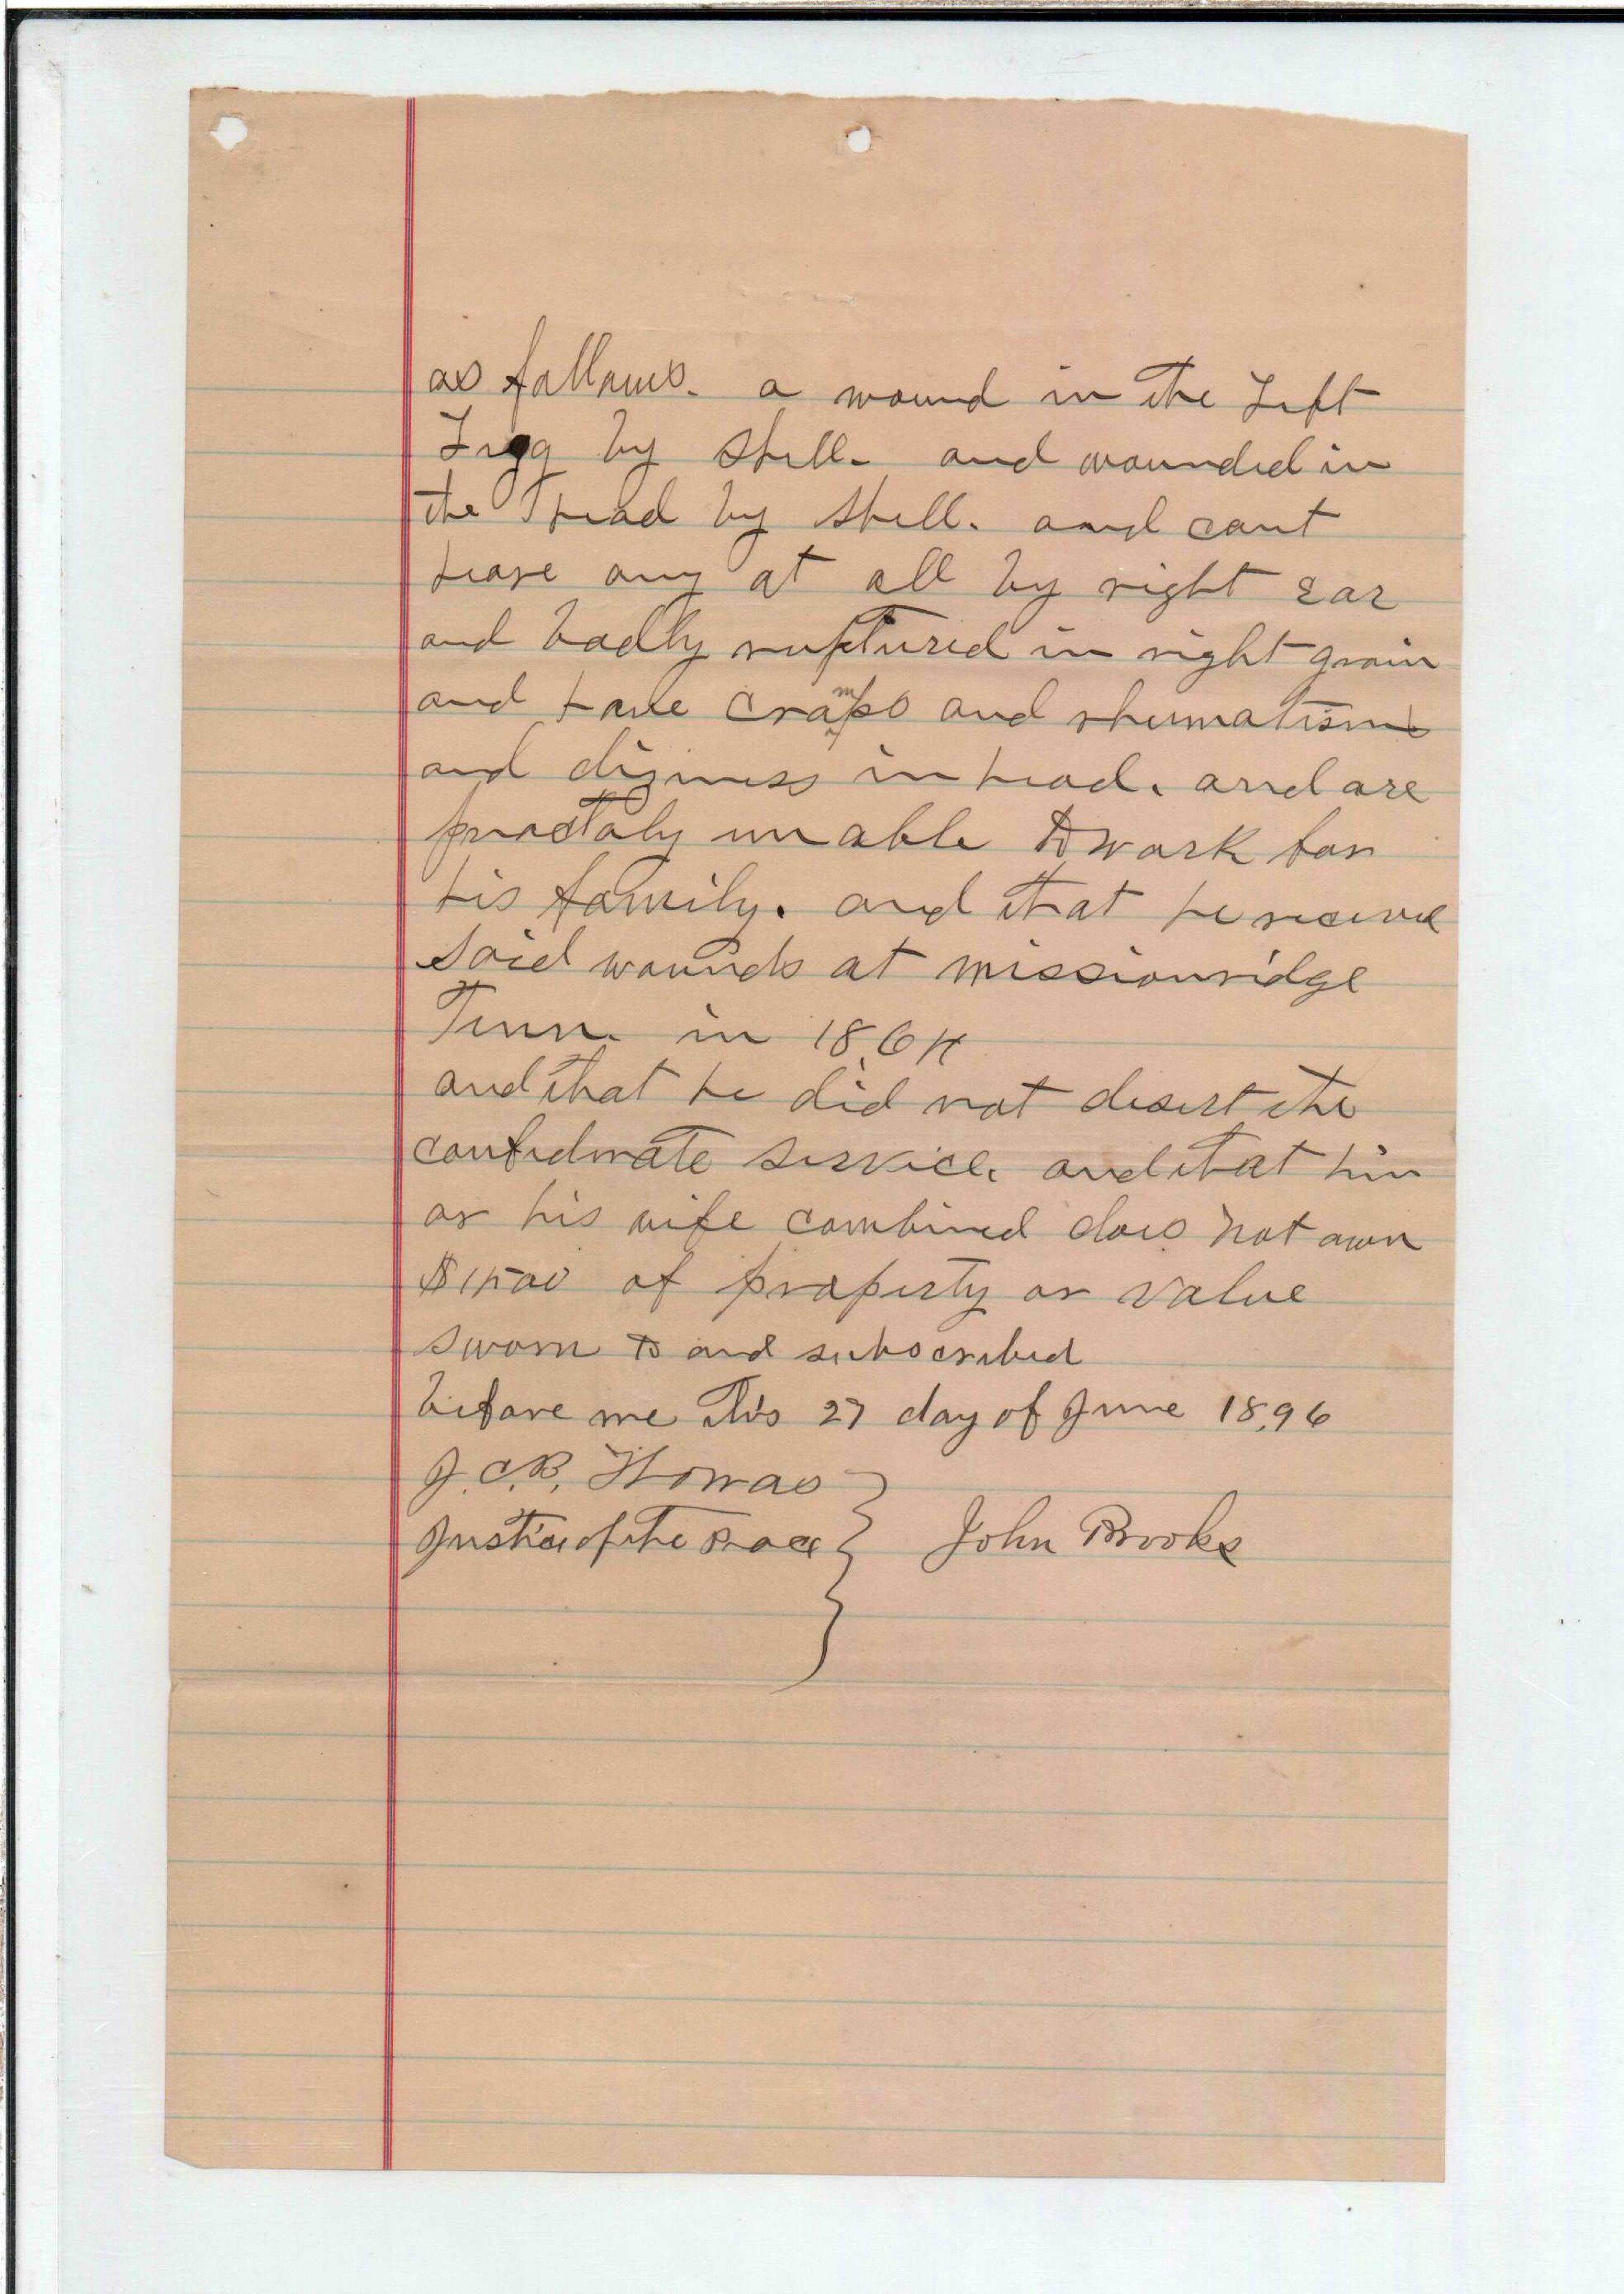 as follows. a wound in the Left
Legg by shell. and wounded in
the head by shell. and cant
heare any at all by right ear
and badly ruptured in right groin
and have cramps and rhumatism
and diziness in head. and are
practaly unable to work for
his family. and that he receive
said wounds at missionridge
Tenn. in 1864
and that he did not desert the
confedrate service. and that him
or his wife combined does not own
$1500 of property or value
sworn to and subscribed
before me this 27 day of June 1896
J. C. B. Thomas
Justice of the Peace } John Brooks